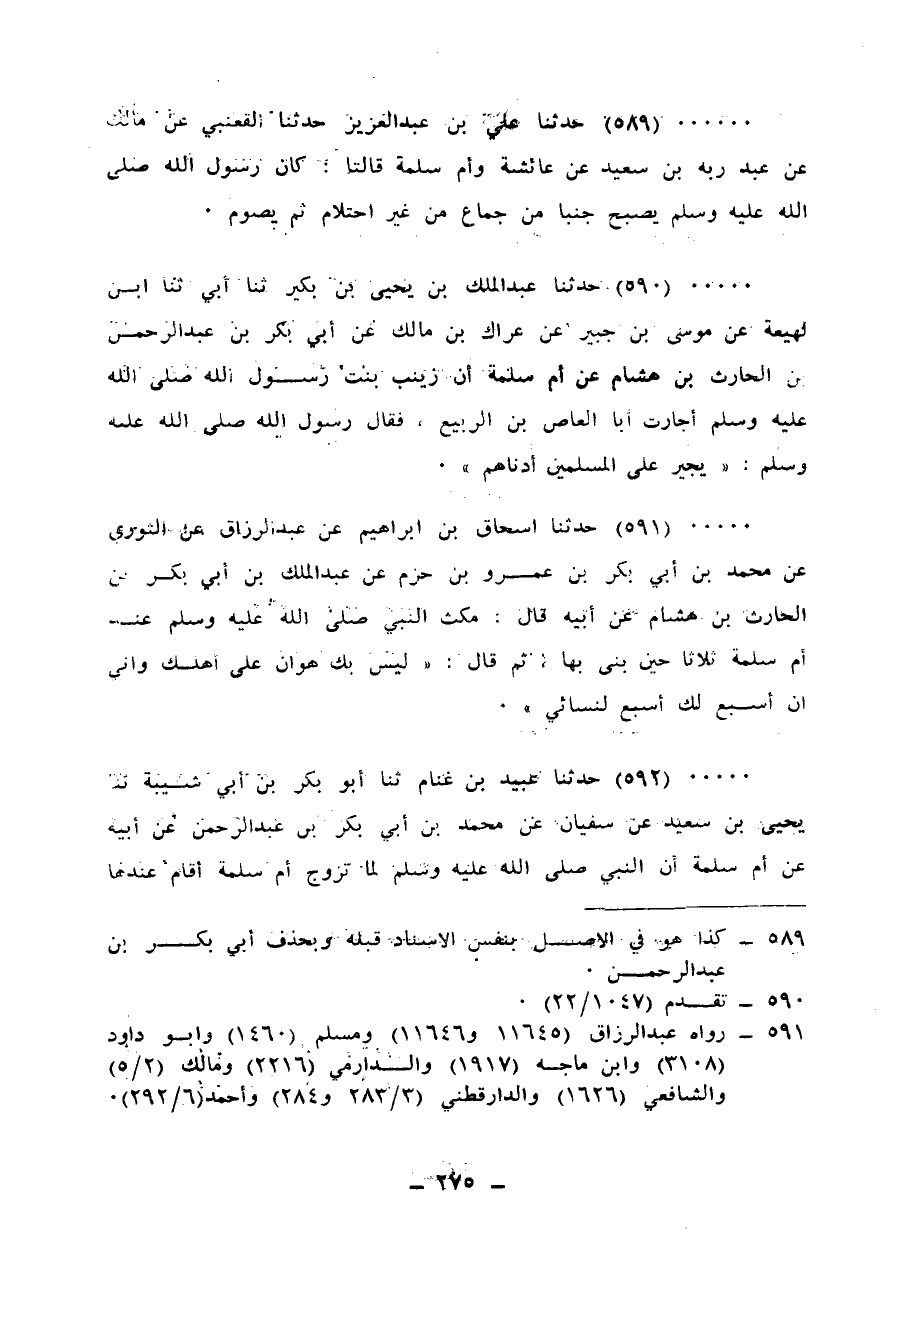 ٠٠٠٠٠٠ (٥٨٩) حدثنا علي بن عبدالعزيز حدثنا القعنبي عن مالك
عن عبد ربه بن سعيد عن عائشة وأم سلمة قالتا : كان رسول الله صلى
الله عليه وسلم يصبح جنبا من جماع من غير احتلام ثم يصوم ٠
٠٠٠٠٠ (٥٩٠) حدثنا عبدالملك بن يحيى بن بكير ثنا أبي ثنا ابن
لهيعة عن موسى بن جبير عن عراك بن مالك عن أبي بكر بن عبدالرحمن
بن الحارث بن هشام عن أم سلمة أن زينب بنت رسول الله صلى الله
عليه وسلم أجارت أبا العاص بن الربيع ، فقال رسول الله صلى الله عليه
وسلم : « يجير على المسلمين أدناهم » ٠
٠٠٠٠٠ (٥٩١) حدثنا اسحاق بن ابراهيم عن عبدالرزاق عن الثوري
عن محمد بن أبي بكر بن عمرو بن حزم عن عبدالملك بن أبي بكر بن
الحارث بن هشام عن أبيه قال : مكث النبي صلى الله عليه وسلم عند
أم سلمة ثلاثا حين بنى بها ; ثم قال : « ليس بك هوان على أهلك واني
ان أسبع لك أسبع لنسائي » ٠
٠٠٠٠٠ (٥٩٢) حدثنا عبيد بن غنام ثنا أبو بكر بن أبي شيبة ثنا
يحيى بن سعيد عن سفيان عن محمد بن أبي بكر بن عبدالرحمن عن أبيه
عن أم سلمة أن النبي صلى الله عليه وسلم لما تزوج أم سلمة أقام عندها
٥٨٩ ـ كذا هو في الاصل بنفس الاسناد قبله وبحذف أبي بكر بن
عبدالرحمن ٠
٥٩٠ ـ تقدم (٢٢/١٠٤٧) ٠
٥٩١ ـ رواه عبدالرزاق (١١٦٤٥ و١١٦٤٦) ومسلم (١٤٦٠) وابو داود
(٣١٠٨) وابن ماجه (١٩١٧) والدارمي (٢٢١٦) ومالك (٥/٢)
والشافعي (١٦٢٦) والدارقطني (٢٨٣/٣ و٢٨٤) وأحمد(٢٩٢/٦)٠
ـ ٢٧٥ ـ